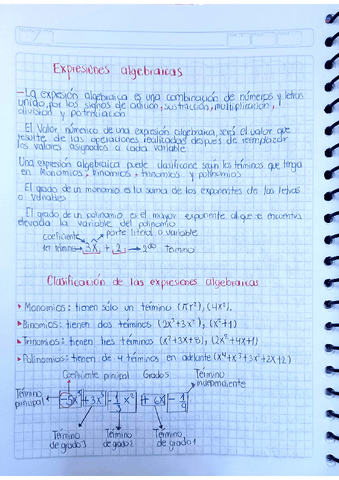 Expresiones algebraicas
-La expesión algebraica es una combinación de números y letras
unido por los signos de adición, sustracción, multiplicación,
división y potenciación
El Valor númerico de una expresión algebraica, será el valor que
resulte de las operaciones realizadas despues de remplazar
los valores asignados a cada variable
Una expresión algebraica puede clasificarse según los términos que tenga
en Monomios, binomios, trinomios y polinomios
El grado de un monomio es la suma de los exponentes de las letras
o variables
El grado de un polinomio es el mayor exponente al que se encuentra
elevada la variable del polinomio
coeficiente parte litral o variable
1er término 3x + 2 2do Termino
Clasificación de las expresiones algebraicas
▸ Monomios: tienen sólo un término (πr²), (4x²).
▸ Binomios: tienen dos términos (2x²+3x³), (x²+1)
▸ Trinomios: tienen tres términos (x²+3x+5), (2x²+4x+1)
▸ Polinomios: tienen de 4 términos en adelante (x⁴+x³+3x²+2x+2)
Coeficiente prinipal Grado5 Término
independiente
Término
prinupal -5x⁵ +3x³ -1/3 x² + 6x - 1/9
Término Término Término
de grado3 de grado2 de grado1